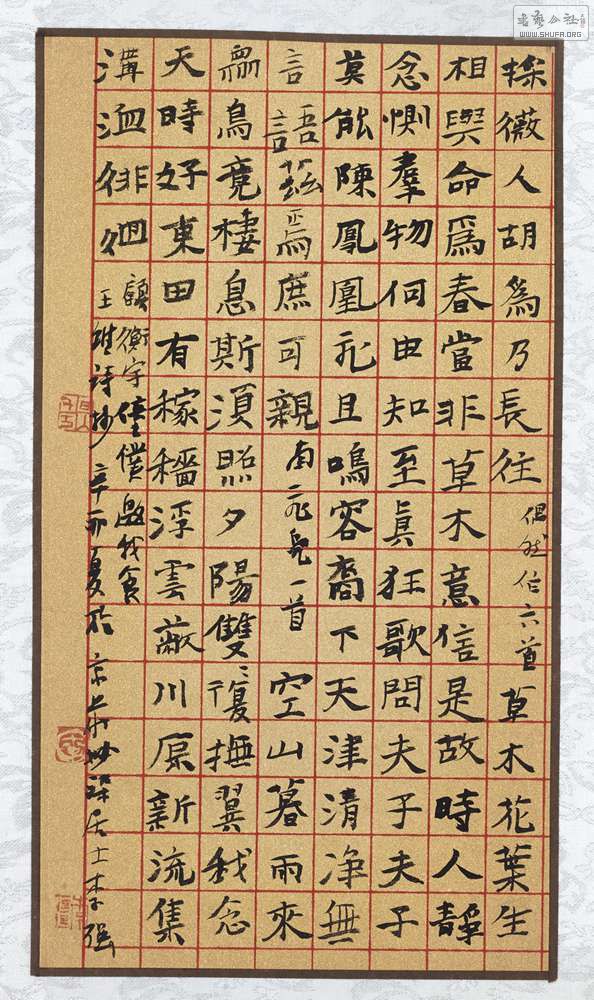 書藝公社
WWW.SHUFA.ORG
採薇人胡爲乃長往偶然作六首草木花葉生
相與命爲春當非草木意信是故時人靜
念惻羣物何由知至眞狂歌問夫子夫子
莫能陳鳳凰飛且鳴容裔下天津清淨無
言語茲焉庶可親飛鳧一首空山暮雨來
衆鳥竟棲息斯須照夕陽雙雙復撫翼我念
天時好東田有稼穡浮雲蔽川原新流集
溝洫徘徊顧衡宇僮僕邀我食
王維詩抄辛卯夏於京華妙居士李强